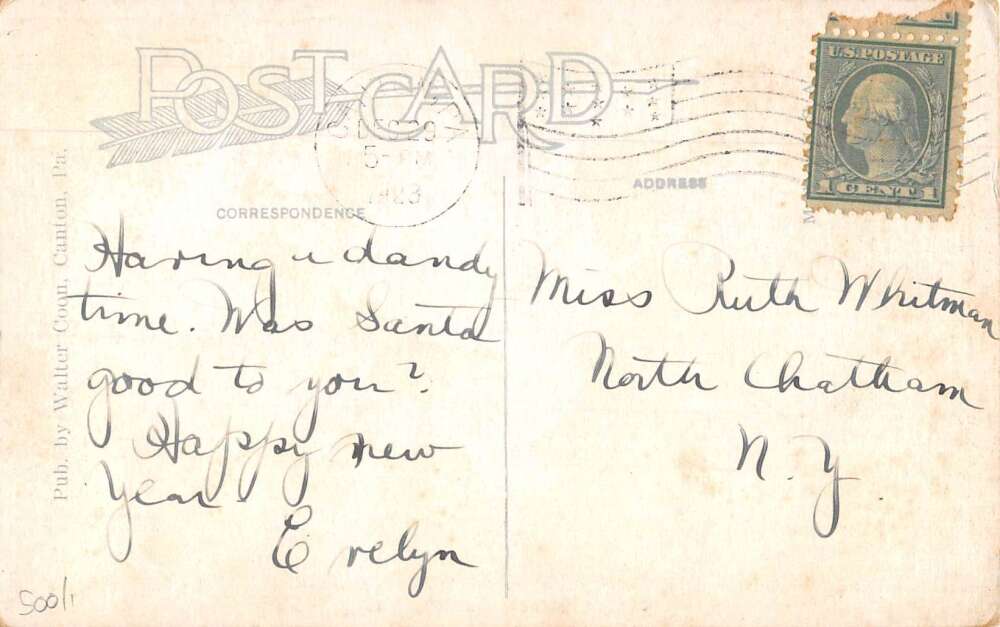 POST CARD
DEC 29
5-PM
1923
U.S. POSTAGE
1 CENT 1
CORRESPONDENCE
ADDRESS
Pub. by Walter Coon, Canton, Pa.
Having a dandy
time. Was Santa
good to you?
Happy new
Year.
Evelyn
Miss Ruth Whitman
North Chatham
N. Y.
500/1